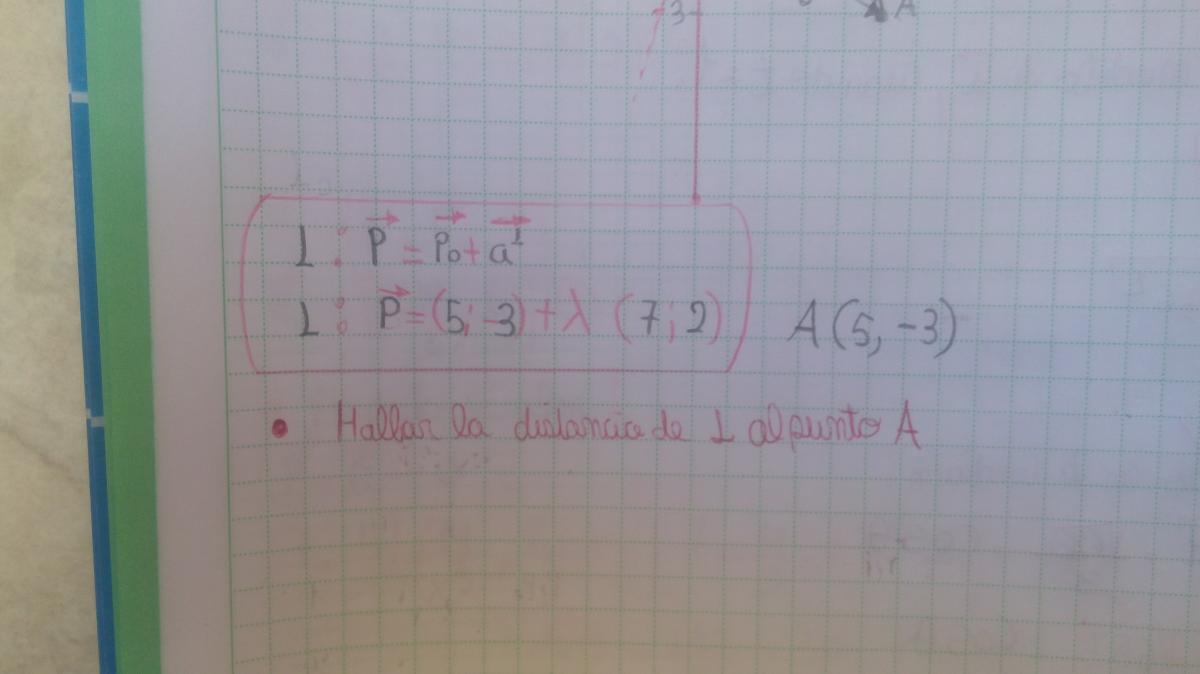 -3 A
L : P = P₀ + a⊥
L : P = (5; -3) + λ (7; 2) A(5, -3)
• Hallar la distancia de L al punto A